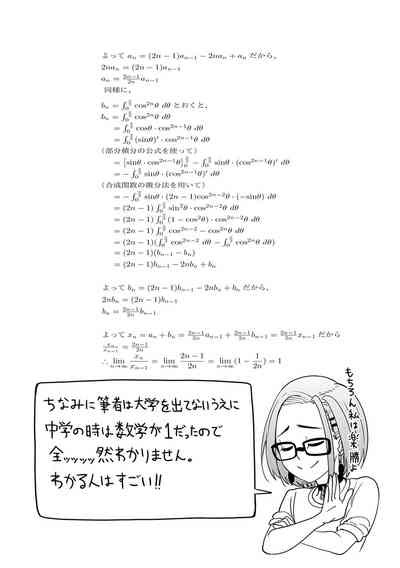 よって aₙ = (2n − 1)aₙ₋₁ − 2naₙ + aₙ だから,
2naₙ = (2n − 1)aₙ₋₁
aₙ = (2n−1)/(2n) aₙ₋₁
同様に,
bₙ = ∫₀^(π/2) cos²ⁿθ dθ とおくと,
bₙ = ∫₀^(π/2) cos²ⁿθ dθ
= ∫₀^(π/2) cosθ · cos²ⁿ⁻¹θ dθ
= ∫₀^(π/2) (sinθ)′ · cos²ⁿ⁻¹θ dθ
(部分積分の公式を使って)
= [sinθ · cos²ⁿ⁻¹θ]₀^(π/2) − ∫₀^(π/2) sinθ · (cos²ⁿ⁻¹θ)′ dθ
= − ∫₀^(π/2) sinθ · (cos²ⁿ⁻¹θ)′ dθ
(合成関数の微分法を用いて)
= − ∫₀^(π/2) sinθ · (2n − 1) cos²ⁿ⁻²θ · (−sinθ) dθ
= (2n − 1) ∫₀^(π/2) sin²θ · cos²ⁿ⁻²θ dθ
= (2n − 1) ∫₀^(π/2) (1 − cos²θ) · cos²ⁿ⁻²θ dθ
= (2n − 1) ∫₀^(π/2) cos²ⁿ⁻² − cos²ⁿθ dθ
= (2n − 1)(∫₀^(π/2) cos²ⁿ⁻² dθ − ∫₀^(π/2) cos²ⁿθ dθ)
= (2n − 1)(bₙ₋₁ − bₙ)
= (2n − 1)bₙ₋₁ − 2nbₙ + bₙ
よって bₙ = (2n − 1)bₙ₋₁ − 2nbₙ + bₙ だから,
2nbₙ = (2n − 1)bₙ₋₁
bₙ = (2n−1)/(2n) bₙ₋₁
よって xₙ = aₙ + bₙ = (2n−1)/(2n) aₙ₋₁ + (2n−1)/(2n) bₙ₋₁ = (2n−1)/(2n) xₙ₋₁ だから
xₙ/xₙ₋₁ = (2n−1)/(2n)
∴ lim_(n→∞) xₙ/xₙ₋₁ = lim_(n→∞) (2n − 1)/(2n) = lim_(n→∞) (1 − 1/(2n)) = 1
もちろん私は楽勝よ
ちなみに筆者は大学を出てないうえに
中学の時は数学が1だったので
全ッッッッ然わかりません。
わかる人はすごい!!